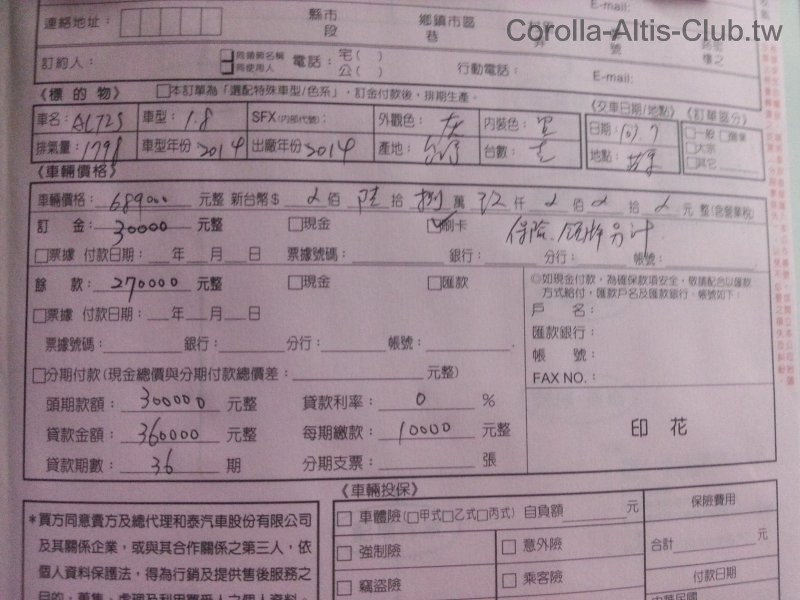 E-mail:
Corolla-Altis-Club.tw
連絡地址： 縣市 鄉鎮市區
段 巷 號 樓之
訂約人： 同領牌名稱 同使用人 電話： 宅( ) 公( ) 行動電話： E-mail:
《標的物》 □本訂單為「選配特殊車型/色系」，訂金付款後，排期生產。 《交車日期/地點》 《訂單區分》
車名： ALTIS 車型： 1.8 SFX(內部代號)： 外觀色： 灰 內裝色： 日期： 103.7 □一般 □
排氣量： 1798 車型年份 2014 出廠年份 2014 產地： 台數： 壹 地點： □大宗 □其它
《車輛價格》
車輛價格： 689000 元整 新台幣$ 佰 陸 拾 捌 萬 玖 仟 佰 拾 元 整(含營業稅)
訂 金： 30000 元整 □現金 ☑刷卡 保險、領牌另計
□票據 付款日期： 年 月 日 票據號碼： 銀行： 分行： 帳號：
餘 款： 270000 元整 □現金 □匯款
◎如現金付款，為確保款項安全，敬請配合以匯款
方式給付，匯款戶名及匯款銀行、帳號如下：
□票據 付款日期： 年 月 日
戶 名：
票據號碼： 銀行： 分行： 帳號：
匯款銀行：
帳 號：
□分期付款(現金總價與分期付款總價差： 元整)
FAX NO.：
頭期款額： 300000 元整 貸款利率： 0 %
貸款金額： 360000 元整 每期繳款： 10000 元整
印 花
貸款期數： 36 期 分期支票： 張
《車輛投保》
*買方同意貴方及總代理和泰汽車股份有限公司
及其關係企業，或與其合作關係之第三人，依
個人資料保護法，得為行銷及提供售後服務之
目的，蒐集、處理及利用買受人之個人資料，
□ 車體險(□甲式□乙式□丙式) 自負額 元 保險費用
□ 強制險 □ 意外險 合計 元
□ 竊盜險 □ 乘客險 付款日期
中華民國